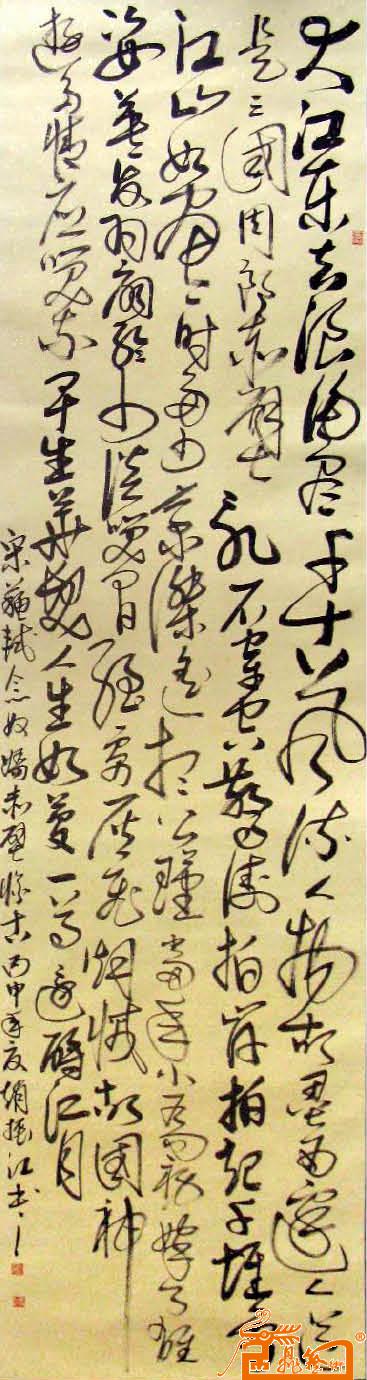 大江东去浪淘尽千古风流人物故垒西边人道
是三國周郎赤壁乱石穿空惊涛拍岸拍起千堆雪
江山如画一时多少豪杰遥想公瑾当年小乔初嫁了雄
姿英发羽扇纶巾谈笑间强虏灰飞烟灭故国神
游多情应笑我早生华发人生如梦一尊还酹江月
宋蘇軾念奴娇赤壁怀古丙申年夏振江书